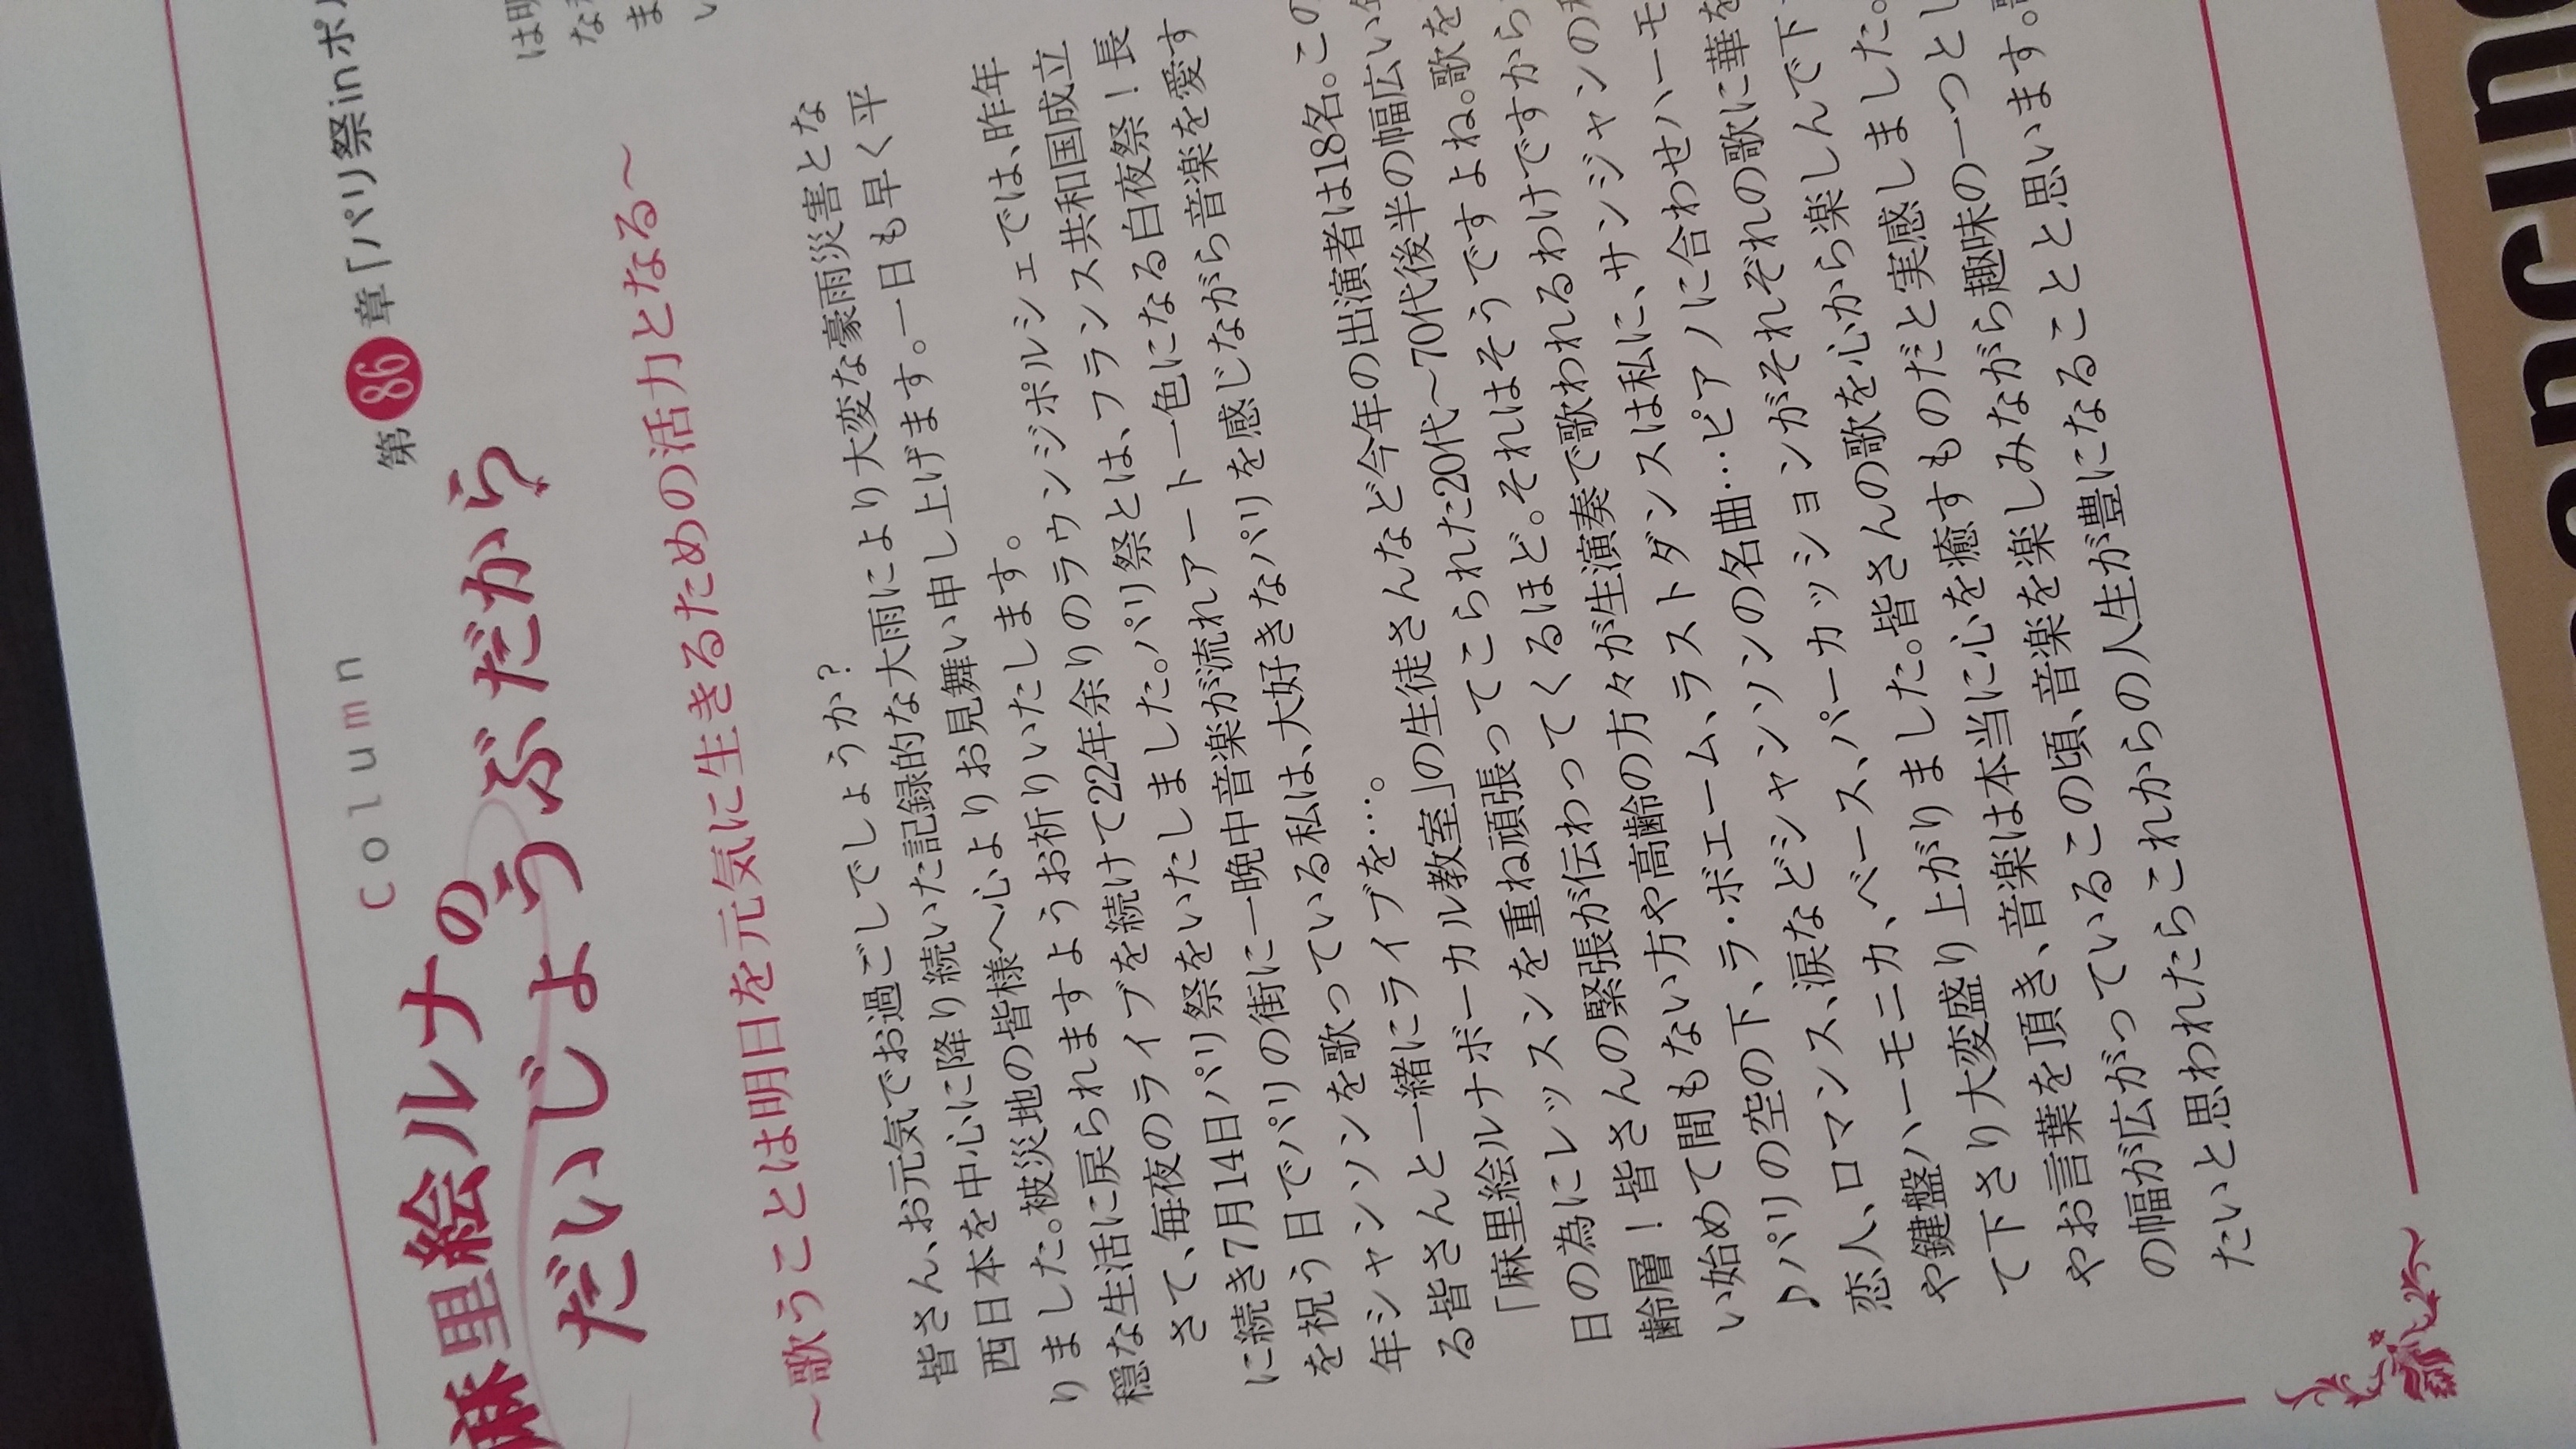 column
第86章「パリ祭inポ
麻里絵ルナの
だいじょうぶだから
～歌うことは明日を元気に生きるための活力となる～
皆さん、お元気でお過ごしでしょうか?
西日本を中心に降り続いた記録的な大雨により大変な豪雨災害とな
りました。被災地の皆様へ心よりお見舞い申し上げます。一日も早く平
穏な生活に戻られますようお祈りいたします。
さて、毎夜のライブを続けて22年余りのラウンジポルシェでは、昨年
に続き7月14日パリ祭をいたしました。パリ祭とは、フランス共和国成立
を祝う日でパリの街に一晩中音楽が流れアート一色になる白夜祭!長
年シャンソンを歌っている私は、大好きなパリを感じながら音楽を愛す
る皆さんと一緒にライブを…。
「麻里絵ルナボーカル教室」の生徒さんなど今年の出演者は18名。この
日の為にレッスンを重ね頑張ってこられた20代～70代後半の幅広い
齢層!皆さんの緊張が伝わってくるほど。それはそうですよね。歌を
い始めて間もない方や高齢の方々が生演奏で歌われるわけですから
♪パリの空の下、ラ・ボエーム、ラストダンスは私に、サンジャンの
恋人、ロマンス、涙などシャンソンの名曲…ピアノに合わせハーモ
や鍵盤ハーモニカ、ベース、パーカッションがそれぞれの歌に華を
て下さり大変盛り上がりました。皆さんの歌を心から楽しんで下
やお言葉を頂き、音楽は本当に心を癒すものだと実感しました。
の幅が広がっているこの頃、音楽を楽しみながら趣味の一つとし
たいと思われたらこれからの人生が豊になることと思います。
は
な
ま
い